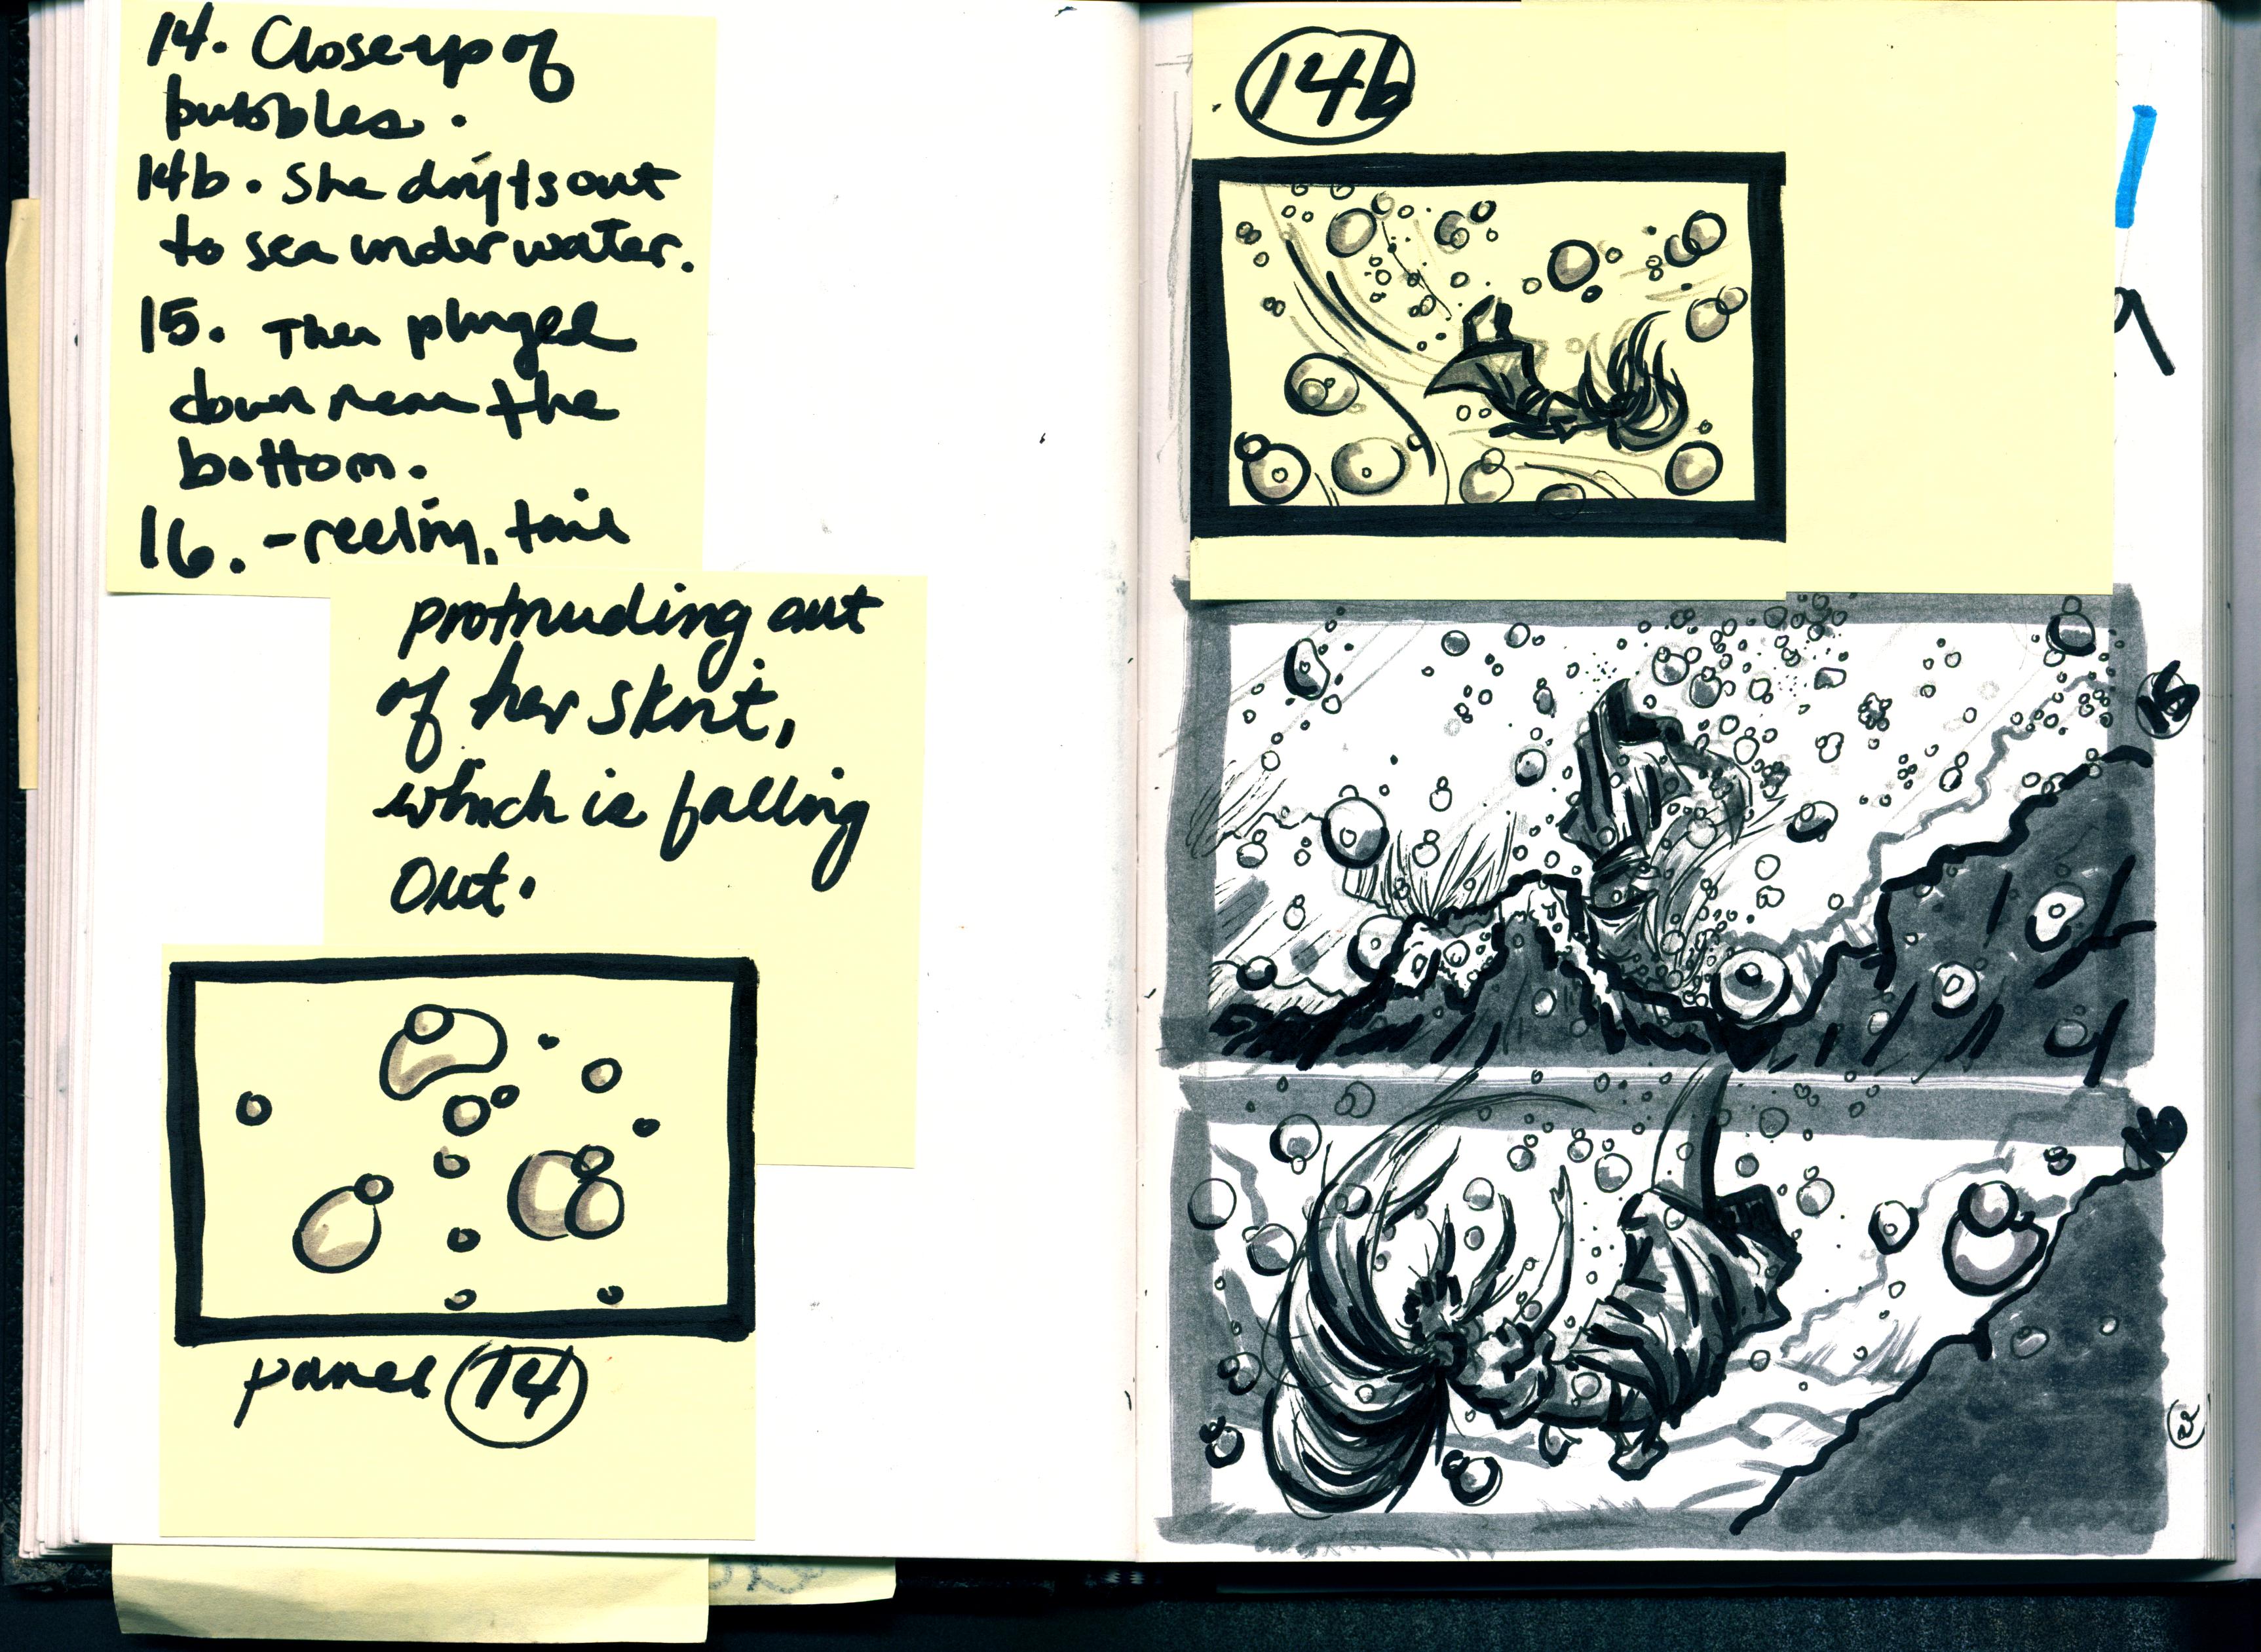 14. Close-up of
bubbles.
14b. She drifts out
to sea under water.
15. Then plunged
down near the
bottom.
16. -reeling, tail
protruding out
of her skirt,
which is falling
out.
panel 14
14b
15
16